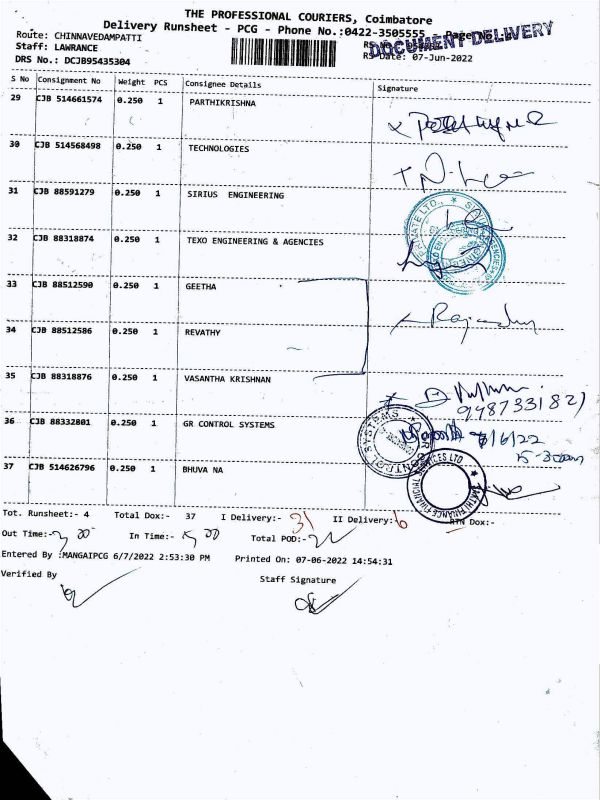 THE PROFESSIONAL COURIERS, Coimbatore
Delivery Runsheet - PCG - Phone No.:0422-3505555 - Page No.
DOCUMENT DELIVERY
Route: CHINNAVEDAMPATTI
Staff: LAWRANCE
DRS No.: DCJB95435304
RS Date: 07-Jun-2022
S No Consignment No Weight PCS Consignee Details Signature
29 CJB 514661574 0.250 1 PARTHIKRISHNA
30 CJB 514568498 0.250 1 TECHNOLOGIES
31 CJB 88591279 0.250 1 SIRIUS ENGINEERING
32 CJB 88318874 0.250 1 TEXO ENGINEERING & AGENCIES
33 CJB 88512590 0.250 1 GEETHA
34 CJB 88512586 0.250 1 REVATHY
35 CJB 88318876 0.250 1 VASANTHA KRISHNAN
36 CJB 88332801 0.250 1 GR CONTROL SYSTEMS
7/6/22
37 CJB 514626796 0.250 1 BHUVA NA
Tot. Runsheet:- 4 Total Dox:- 37 I Delivery:- 31 II Delivery:- 6 RTN Dox:-
Out Time:- In Time:- Total POD:-
Entered By :MANGAIPCG 6/7/2022 2:53:30 PM Printed On: 07-06-2022 14:54:31
Verified By Staff Signature